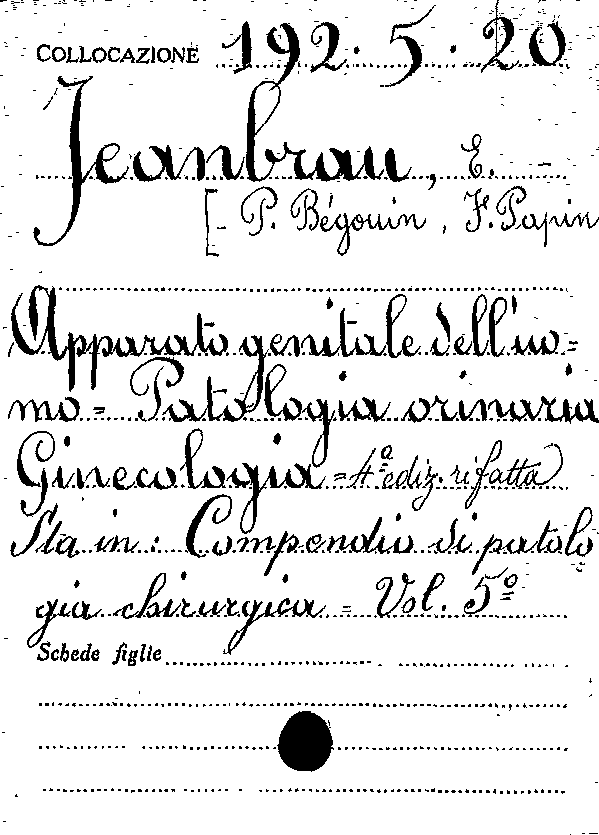 COLLOCAZIONE 192.5.20
Jeanbrau, E. -
[- P. Bégouin, F. Papin
Apparato genitale dell'uo=
mo = Patologia orinaria
Ginecologia = 4ª ediz. rifatta
Sta in: Compendio di patolo
gia chirurgica = Vol. 5º
Schede figlie